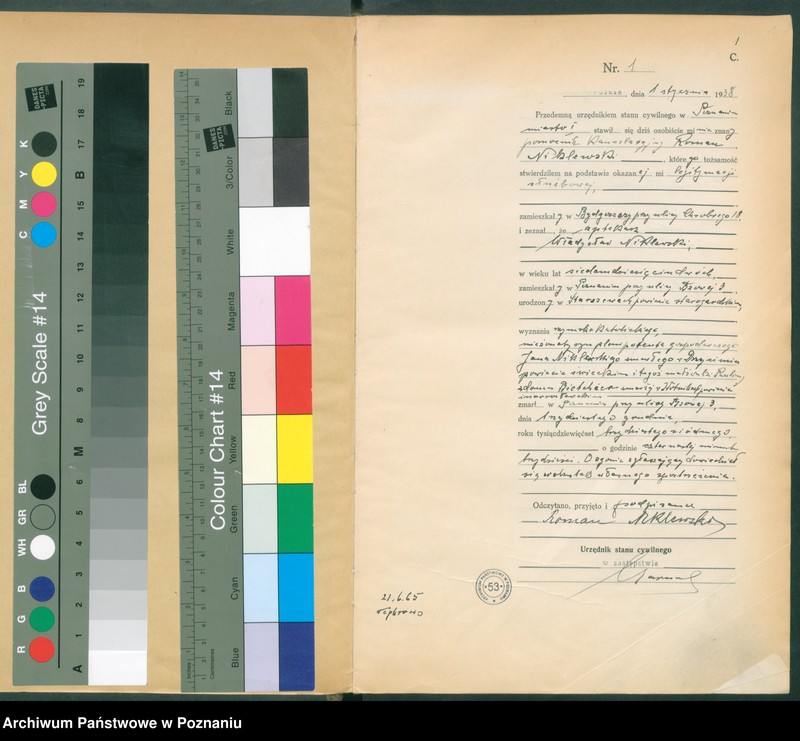 1
C.
Nr. 1
, dnia 1 stycznia 1938
Przedemną urzędnikiem stanu cywilnego w Poznaniu
miasto stawił się dziś osobiście mi nieznany
pomocnik kancelaryjny Roman
Niklewski, którego tożsamość
stwierdziłem na podstawie okazanej mi legitymacji
służbowej,
zamieszkały w Bydgoszczy przy ulicy Chrobrego 18
i zeznał, że aptekarz
Władysław Niklewski,
w wieku lat siedemdziesięciu dwóch,
zamieszkały w Poznaniu przy ulicy 3,
urodzony w powiecie starogardzkim,
wyznania rzymsko katolickiego,
nieżonaty syn plenipotenta gospodarczego
Jana Niklewskiego zmarłego w
powiecie świeckim i tegoż małżonki
z domu zmarłej w powiecie
zmarł w Poznaniu przy ulicy 3,
dnia trzydziestego grudnia,
roku tysiącdziewięćset trzydziestego siódmego,
o godzinie czternastej minut
trzydzieści. O zgonie zgłaszający dowiedział
się z własnego spostrzeżenia.
Odczytano, przyjęto i podpisano
Roman Niklewski
Urzędnik stanu cywilnego
w zastępstwie
21.6.65
53
Grey Scale #14
C M Y K
R G B WH GR BL
A 1 2 3 4 5 6 M 8 9 10 11 12 13 14 15 B 17 18 19
DANES PICTA
Colour Chart #14
Blue Cyan Green Yellow Red Magenta White 3/Color Black
Inches
Centimetres
DANES PICTA
Archiwum Państwowe w Poznaniu